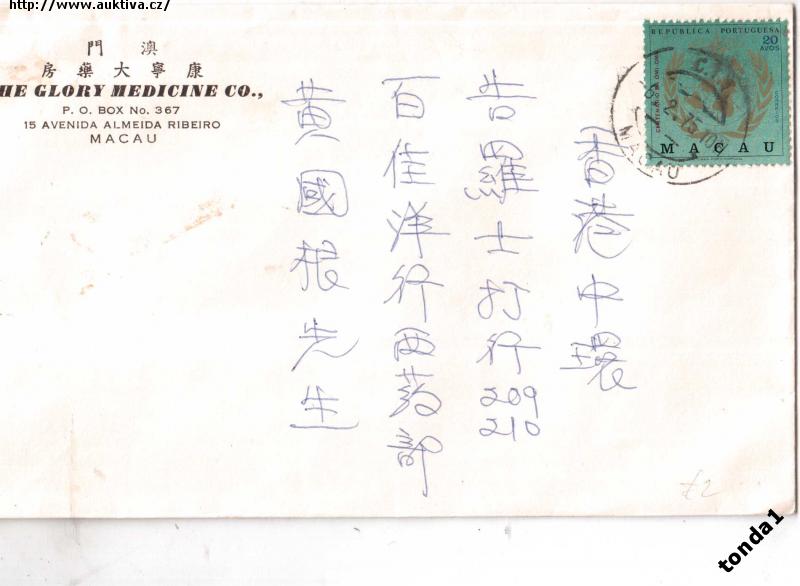 http://www.auktiva.cz/
門 澳
房藥大寧康
HE GLORY MEDICINE CO.,
P. O. BOX No. 367
15 AVENIDA ALMEIDA RIBEIRO
MACAU
REPÚBLICA PORTUGUESA
20
AVOS
MACAU
MACAU
香港中環
告羅士打行209
210
百佳洋行西药部
黄國根先生
£2
tonda1